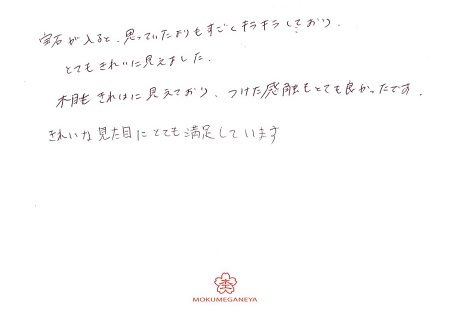 宝石が入ると、思っていたよりもすごくキラキラしており、
とてもきれいに見えました。
木目もきれいに見えており、つけた感触もとても良かったです。
きれいな見た目にとても満足しています
MOKUMEGANEYA